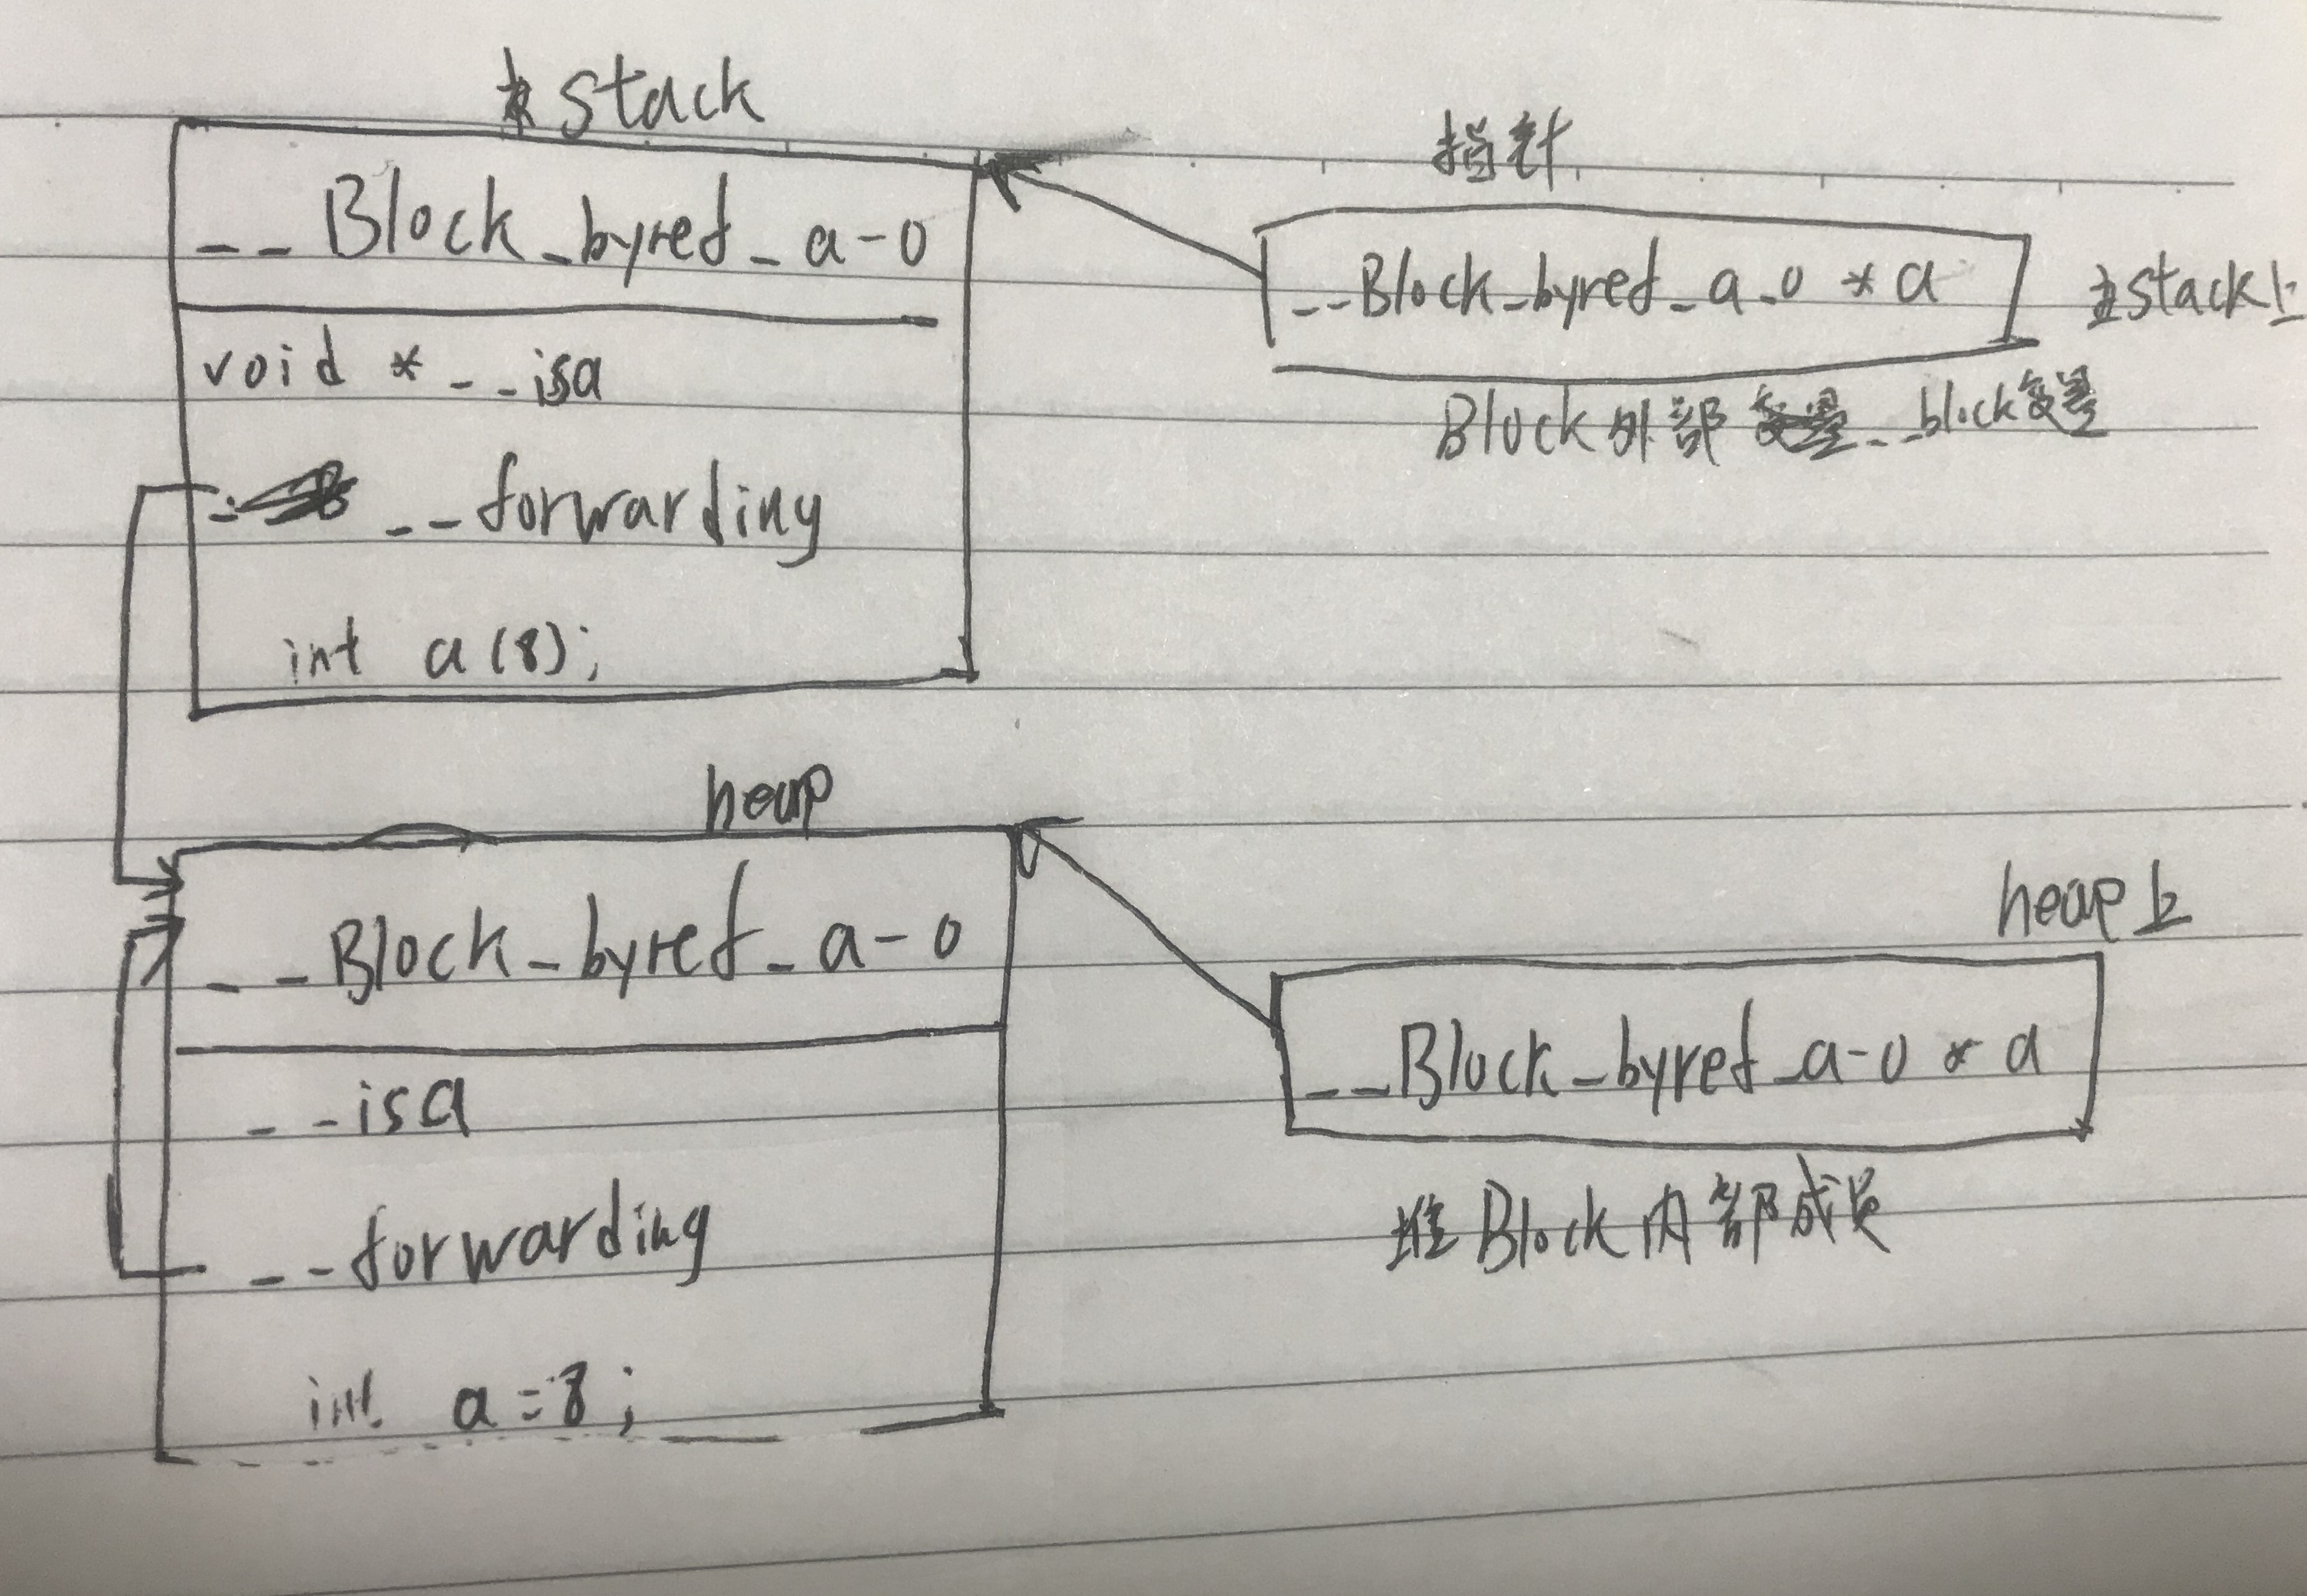 stack
__Block_byref_a-0
void * __isa
__forwarding
int a(8);
指针
__Block_byref_a_0 * a
stack上
Block外部 __block变量
heap
__Block_byref_a-0
__isa
__forwarding
int a=8;
heap上
__Block_byref_a-0 * a
堆Block内部成员